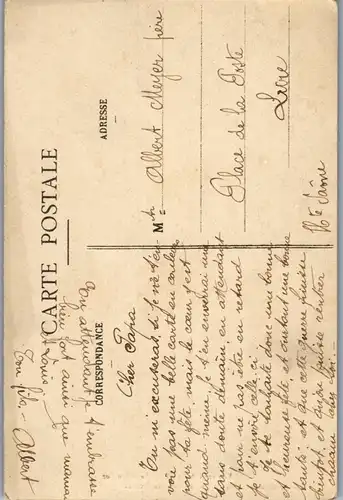 CARTE POSTALE
CORRESPONDANCE
ADRESSE
Cher Papa
Tu m'excuseras, si je ne t'en-
voie pas une belle carte en couleurs
pour ta fête, mais le cœur y est
quand même, je t'en enverrai une
sans doute demain en attendant
et pour ne pas être en retard
je t'envoie celle ci
Je te souhaite donc une bonne
et heureuse fête, et surtout une bonne
santé, et que cette guerre finisse
bientôt et qu'on puisse rentrer
chacun chez soi.
En attendant je t'embrasse
bien fort ainsi que maman
et
Ton fils. Albert
M
Albert Meyer père
Place de la Poste
Lure
Hte Saône